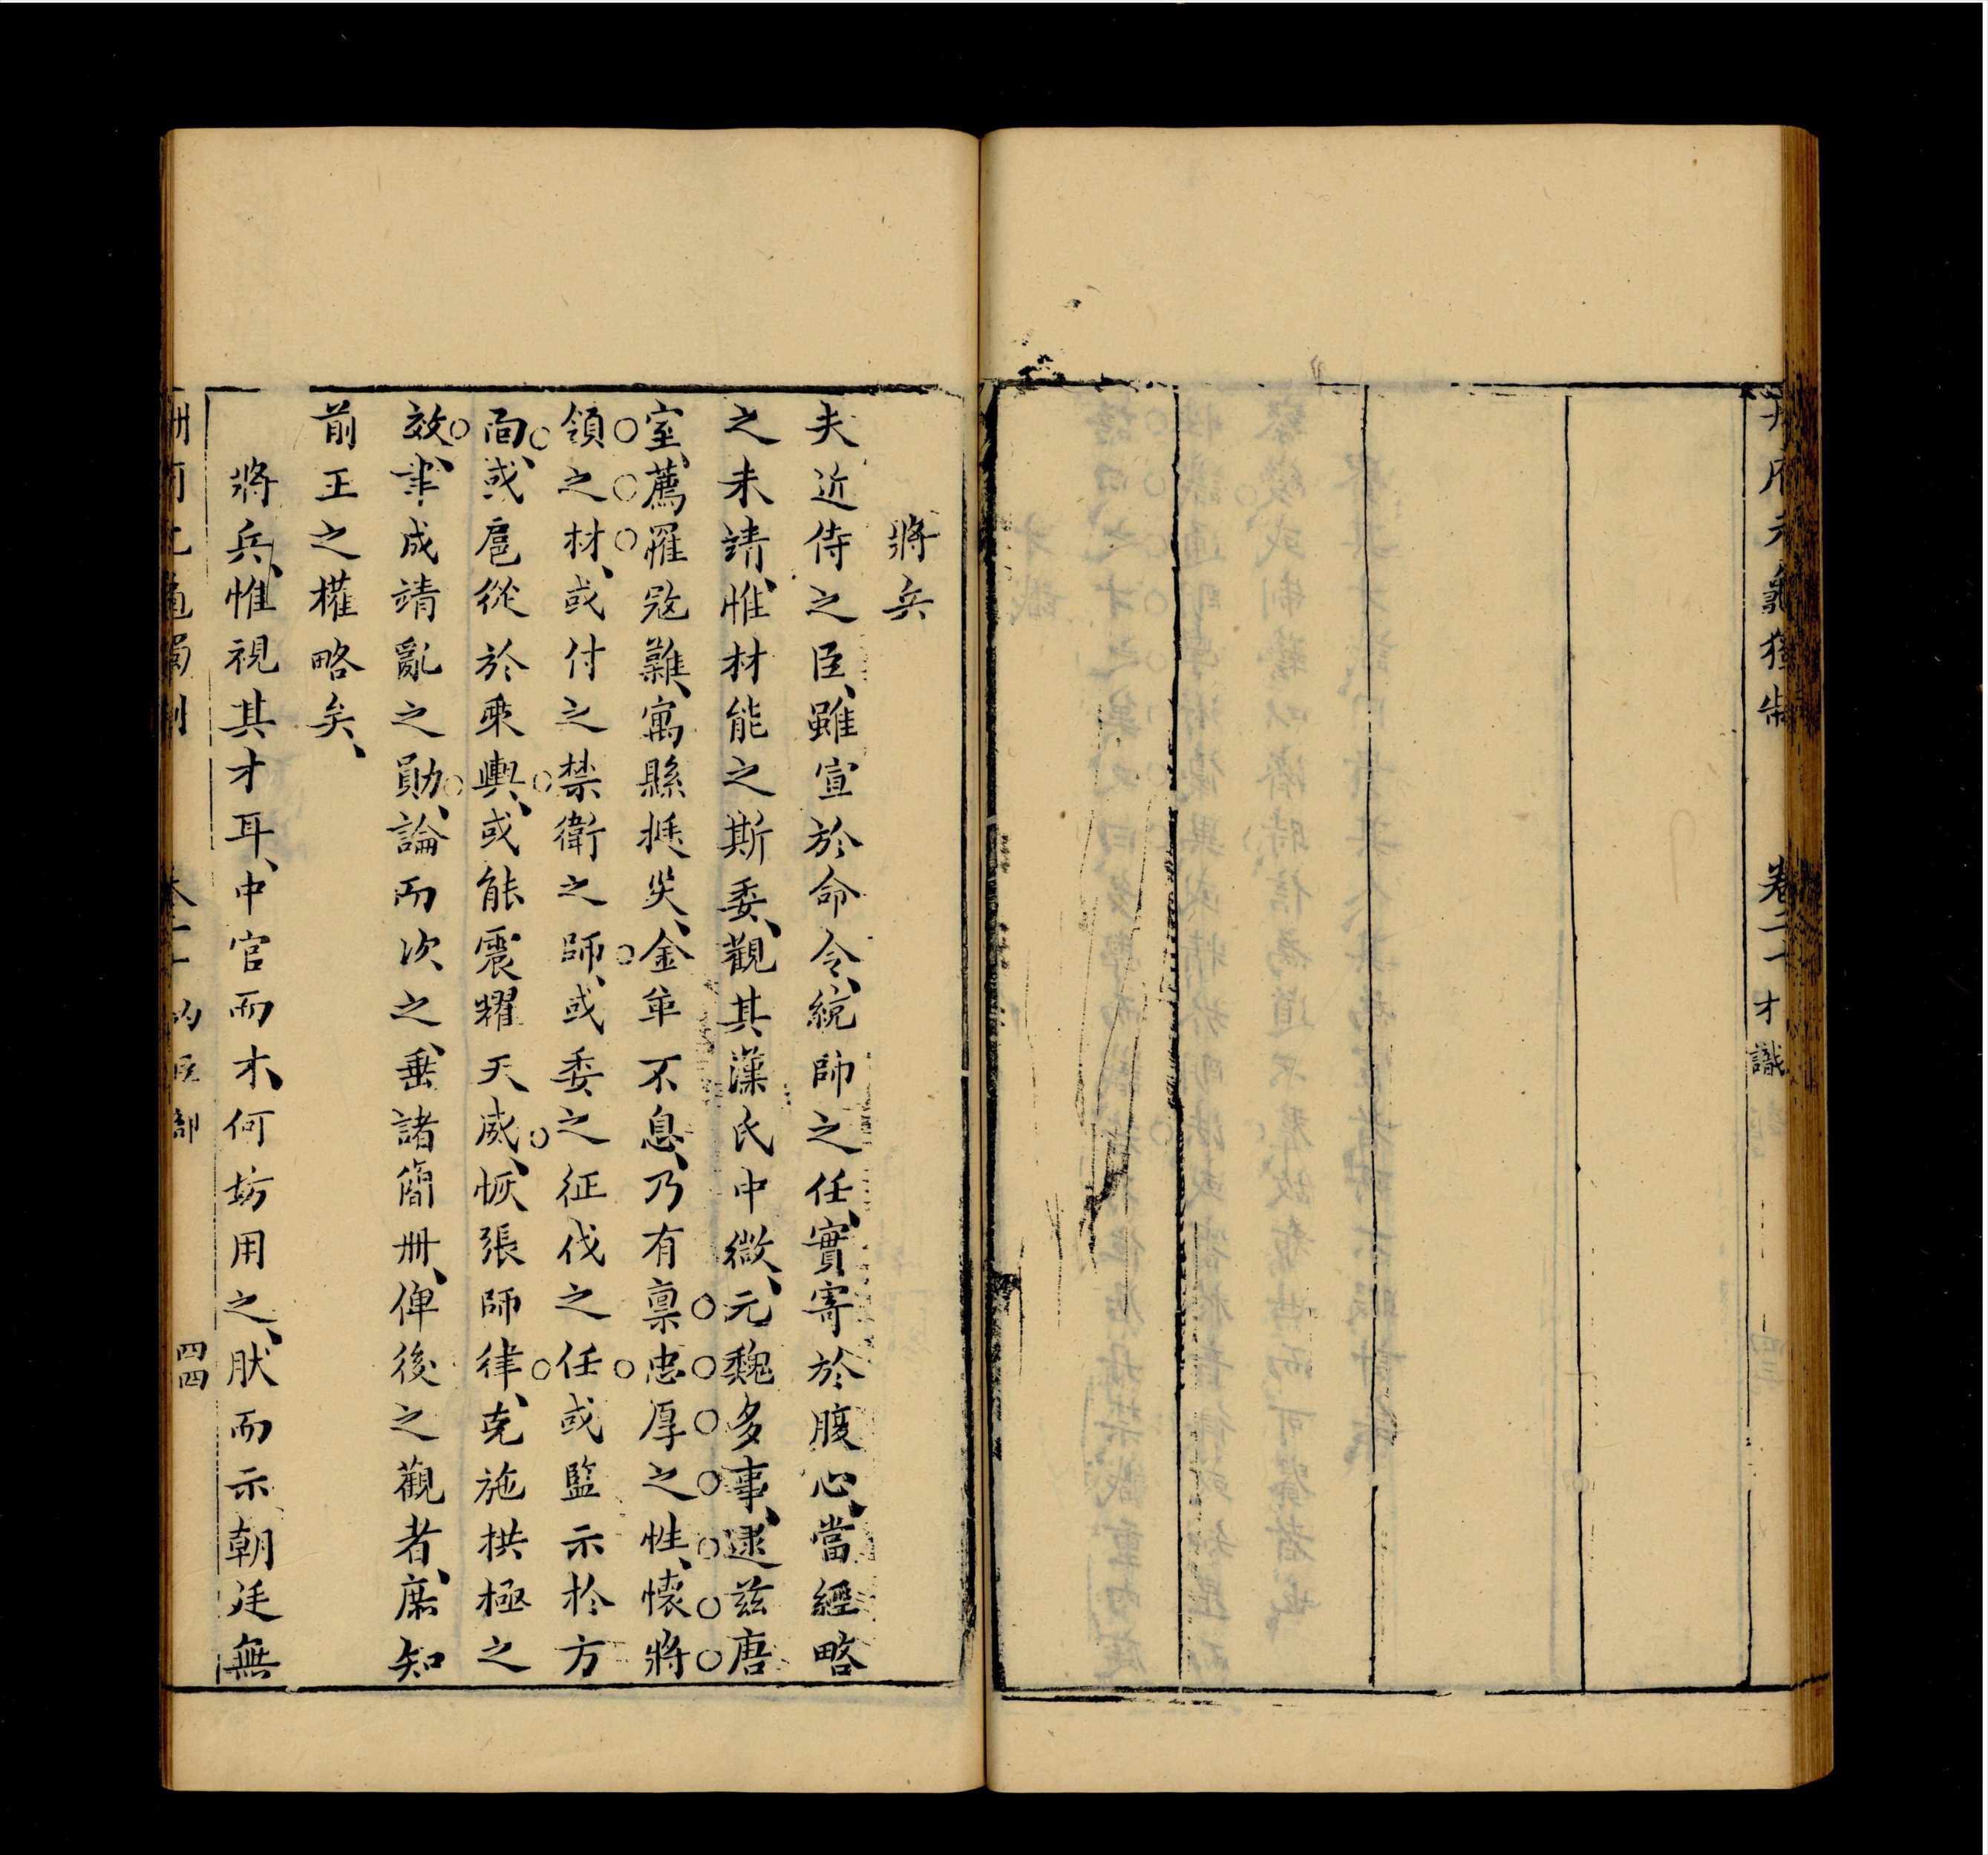 册府元龜獨制 卷二十一 才識
將兵
夫近侍之臣、雖宣於命令、統師之任、實寄於腹心、當經略
之未靖、惟材能之斯委、觀其漢氏中微、元魏多事、逮茲唐
室、薦罹寇難、寓縣挻災、金革不息、乃有稟忠厚之性、懷將
領之材、或付之禁衛之師、或委之征伐之任或監示於方
面、或扈從於乘輿、或能震耀天威、恢張師律、克施拱極之
效、聿成靖亂之勛、論而次之、垂諸簡冊、俾後之觀者、庶知
前王之權略矣、
將兵、惟視其才耳、中官而才、何妨用之、肰而示朝廷無
四四